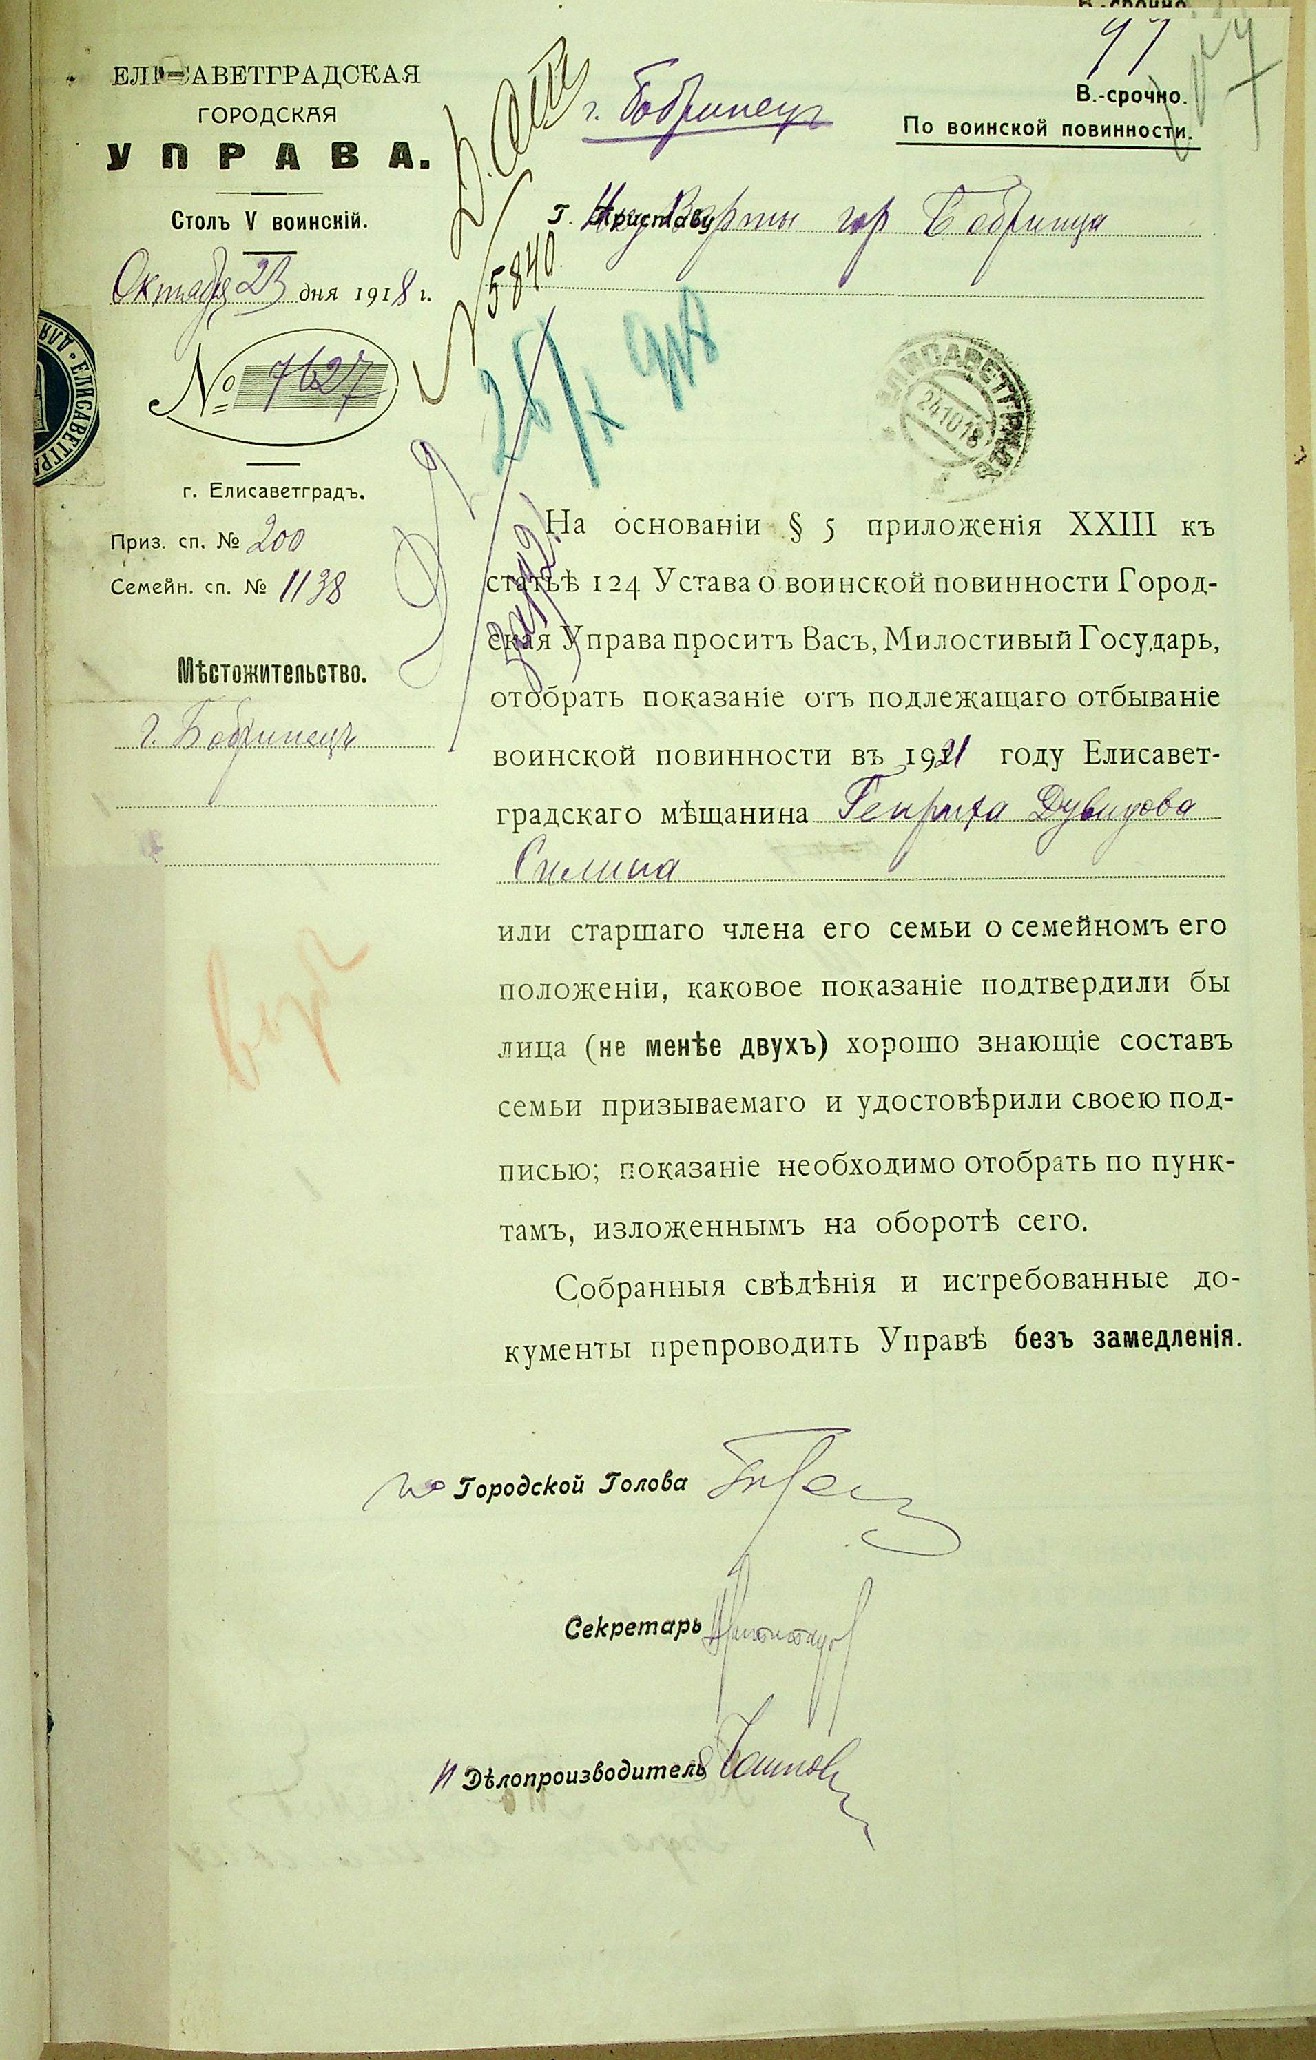 ЕЛИСАВЕТГРАДСКАЯ
ГОРОДСКАЯ
УПРАВА.
Столъ V воинскій.
Октября 23 дня 1918 г.
№ 7627
г. Елисаветградъ.
Приз. сп. № 200
Семейн. сп. № 1138
Мѣстожительство.
г. Бобринецъ
5840
25/X 918
г. Бобринецъ
В.-срочно.
По воинской повинности.
Г. Приставу Варты гор Бобринца
ЕЛИСАВЕТГРАДЪ
24 10 18
На основаніи § 5 приложенія XXIII къ
статьѣ 124 Устава о воинской повинности Город-
ская Управа проситъ Васъ, Милостивый Государь,
отобрать показаніе отъ подлежащаго отбыванію
воинской повинности въ 1921 году Елисавет-
градскаго мѣщанина Генриха Дувидова
Силина
или старшаго члена его семьи о семейномъ его
положеніи, каковое показаніе подтвердили бы
лица (не менѣе двухъ) хорошо знающіе составъ
семьи призываемаго и удостовѣрили своею под-
писью; показаніе необходимо отобрать по пунк-
тамъ, изложеннымъ на оборотѣ сего.
Собранныя свѣдѣнія и истребованные до-
кументы препроводить Управѣ безъ замедленія.
Городской Голова
Секретарь
Дѣлопроизводитель